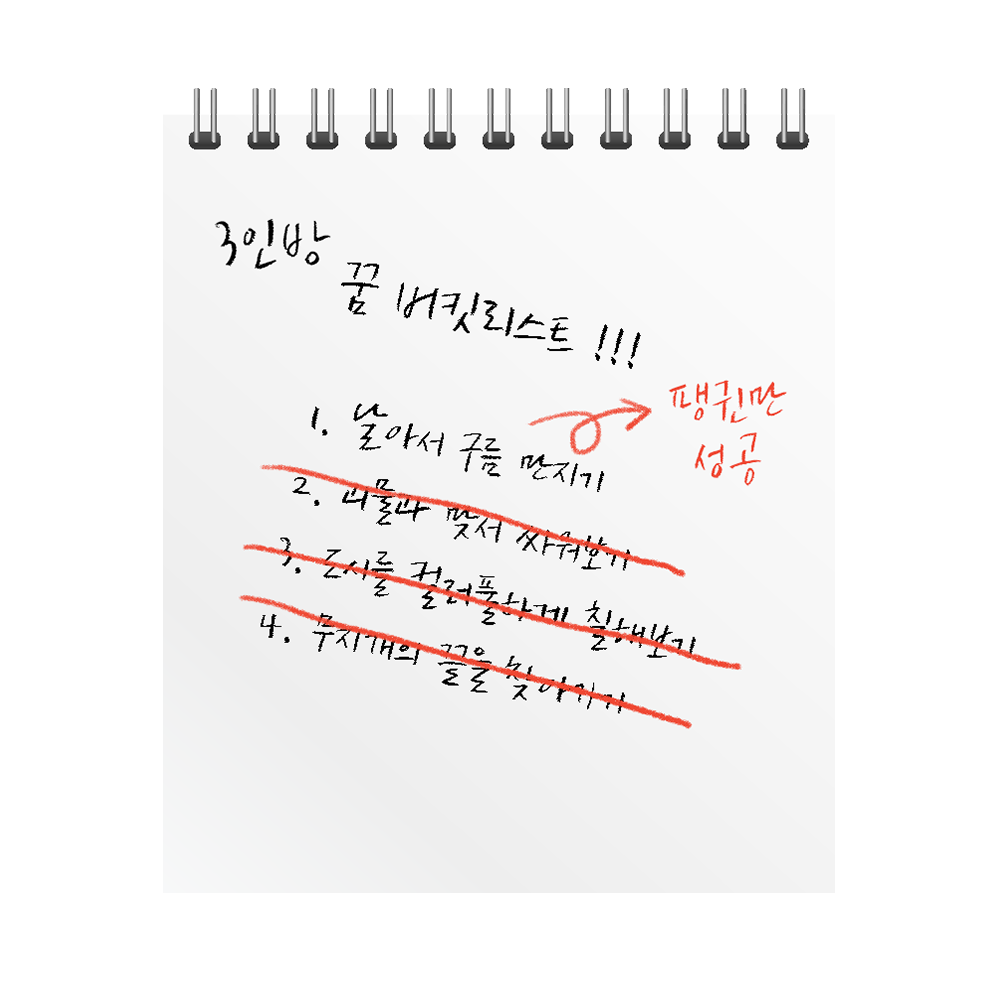 3인방
꿈 버킷리스트 !!!
1. 날아서 구름 만지기
팽귄만
성공
2. 괴물과 맞서 싸워보기
3. 도시를 컬러풀하게 칠해보기
4. 무지개의 끝을 찾아가기